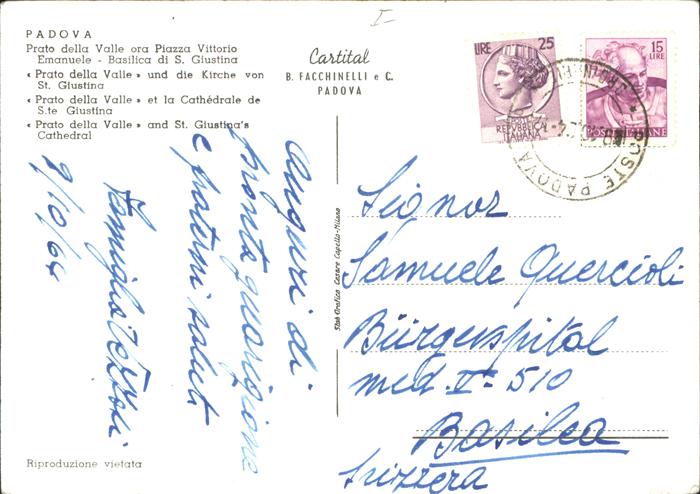 I-
PADOVA
Prato della Valle ora Piazza Vittorio
Emanuele - Basilica di S. Giustina
« Prato della Valle » und die Kirche von
St. Giustina
« Prato della Valle » et la Cathédrale de
S.te Giustina
« Prato della Valle » and St. Giustina's
Cathedral
Cartital
B. FACCHINELLI e C.
PADOVA
LIRE 25
REPVBBLICA
ITALIANA
15
LIRE
POSTE ITALIANE
POSTE PADOVA
Auguri di
pronta guarigione
e fraterni saluti
Famiglia
9/10/64
Stab. Grafico Cesare Capello-Milano
Signor
Samuele Quercioli
Bürgerspital
med. II- 510
Basilea
Svizzera
Riproduzione vietata